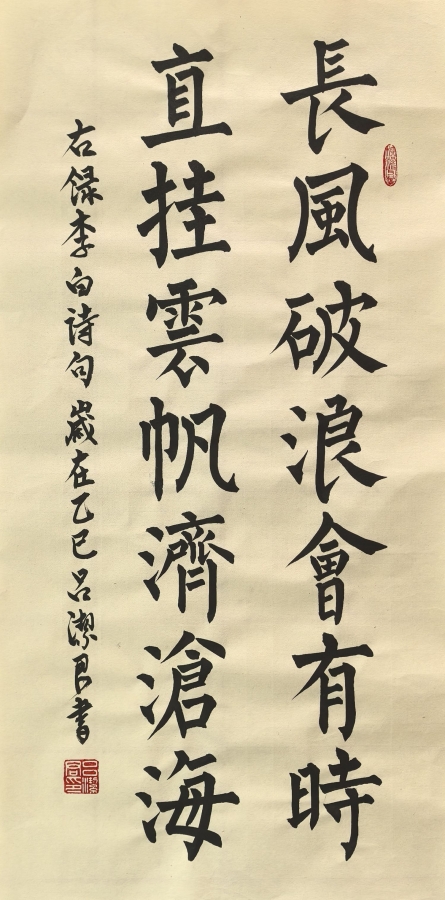 長風破浪會有時
直挂雲帆濟滄海
右録李白詩句歲在乙巳吕潔良書